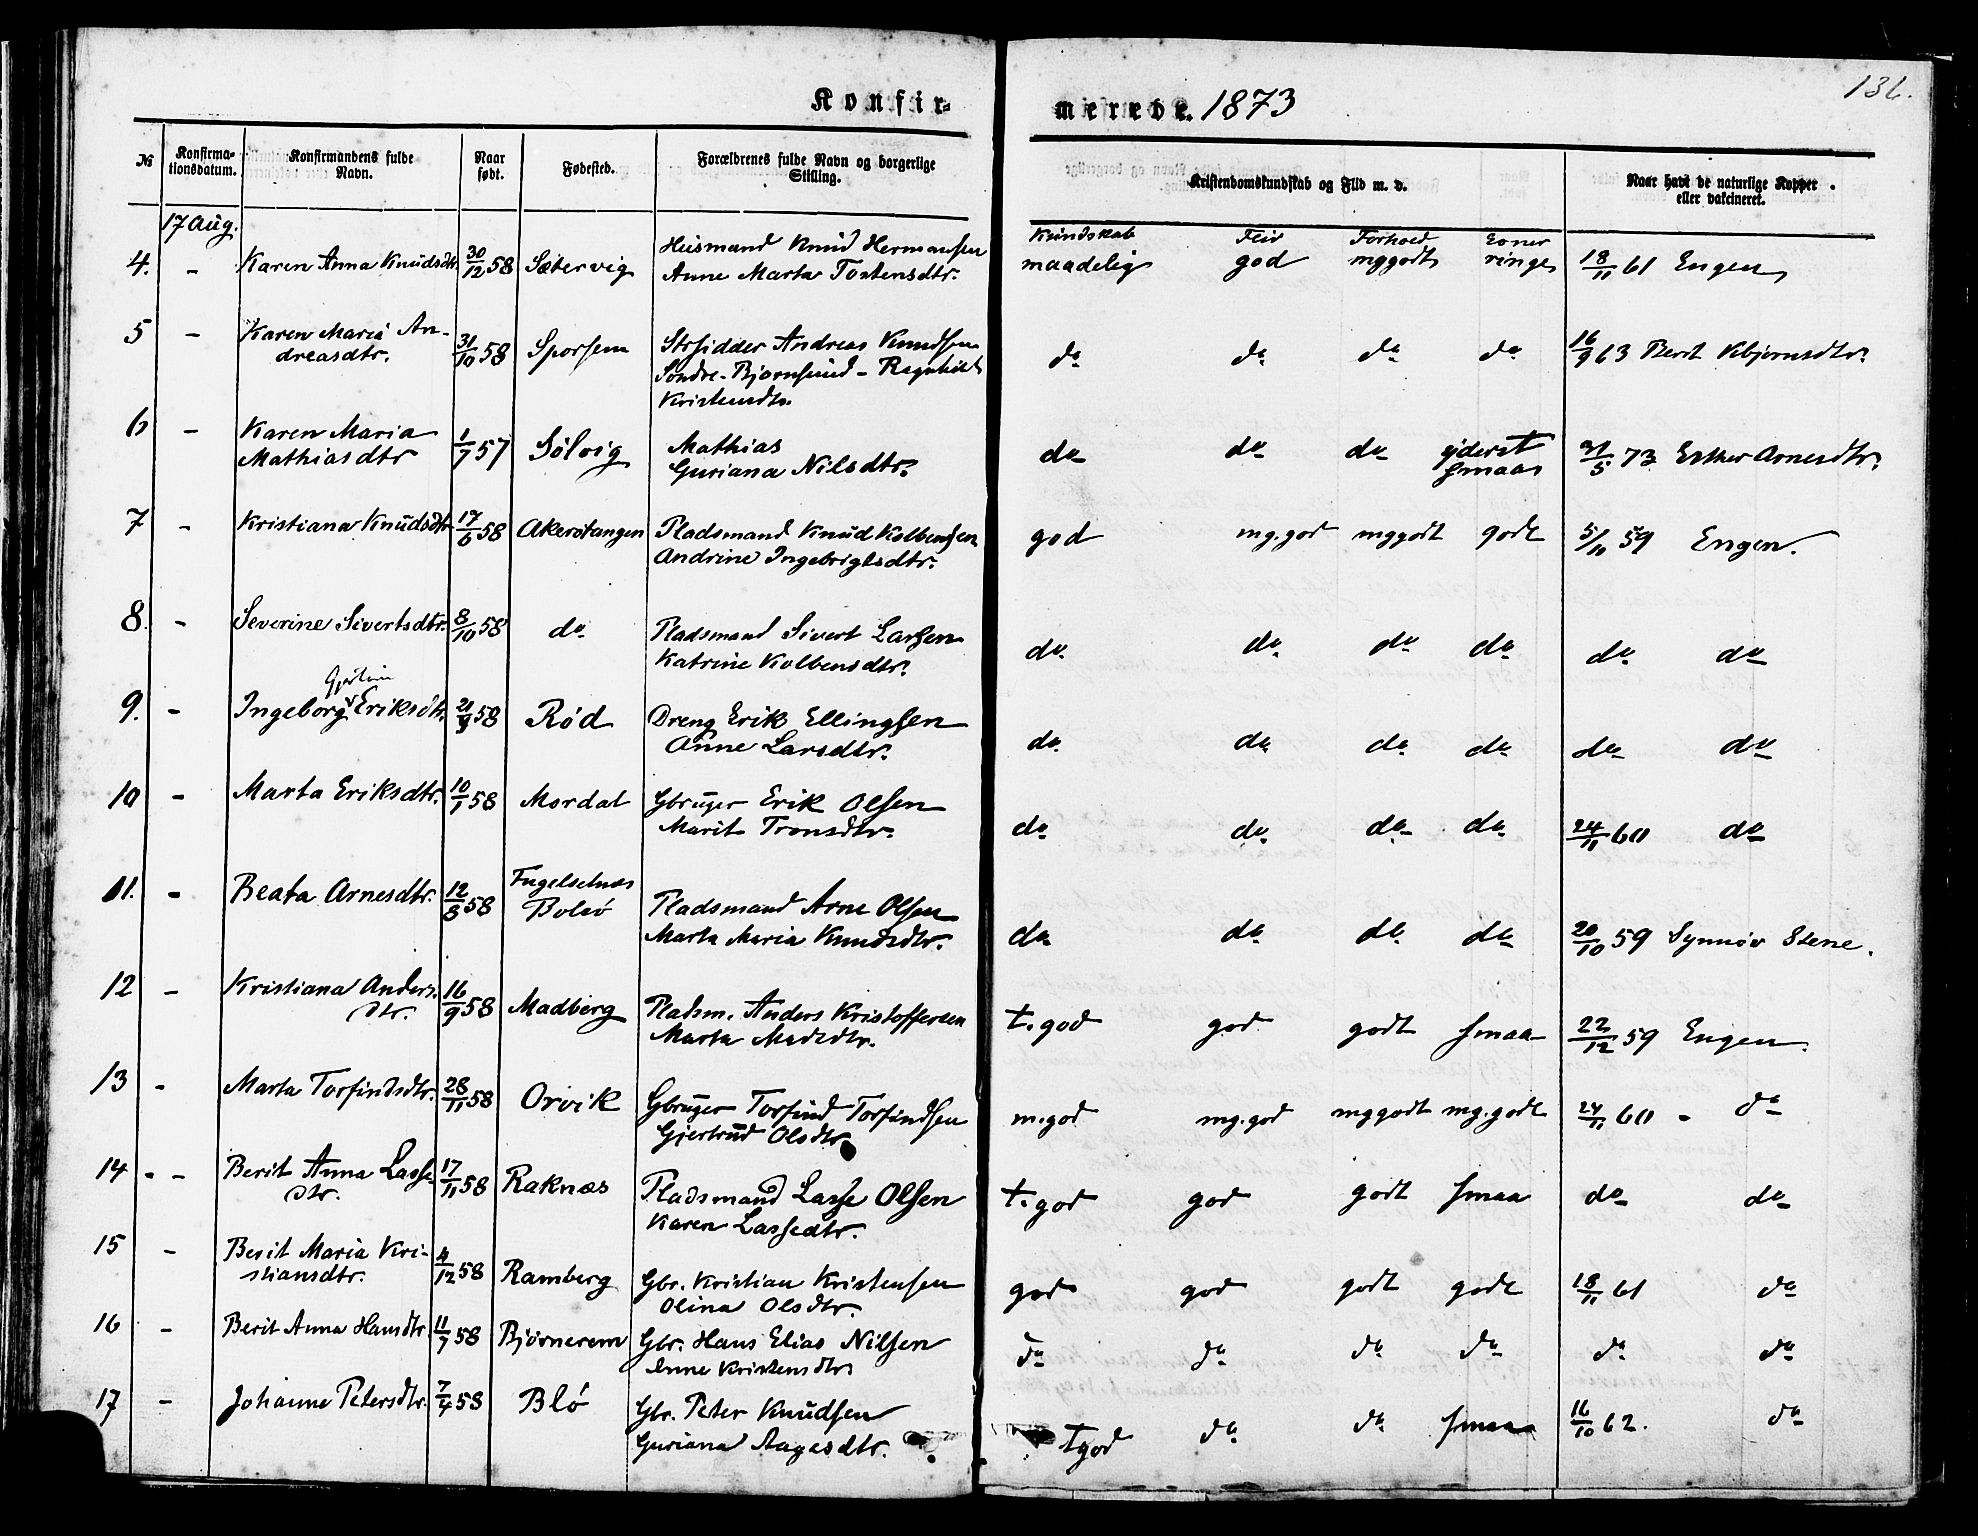 Konfir-
merede. 1873
№ Konfirma-tionsdatum. Konfirmandens fulde Navn. Naar født. Fødested. Forældrenes fulde Navn og borgerlige Stilling. Kristendomskundskab og Flid m. v. Naar havt de naturlige Kopper eller vakcineret.
17 Aug.
Kundskab Flid Forhold Evner
4. - Karen Anna Knudsdtr. 30/12 58 Sætervig Husmand Knud Hermansen maadelig god mggodt ringe 18/11 61 Engen
Anne Marta Tostensdtr.
5 - Karen Maria An- 31/10 58 Sporsem Strsidder Andreas Knudsen do do do do 16/9 63 Berit Kbjørnsdtr.
dreasdtr. Søndre-Bjørnsund - Ragnhild
Kristensdtr.
6 - Karen Maria 1/7 57 Sølvig Mathias do do do yderst 31/5 73 Esther Arnesdtr.
Mathiasdtr Guriana Nilsdtr. smaa
7 - Kristiana Knudsdtr 17/6 58 Akerøtangen Pladsmand Knud Kolbensen god mg.god mggodt godt 5/11 59 Engen.
Andrine Ingebrigtsdtr.
8. - Severine Sivertsdtr. 8/10 58 do Pladsmand Sivert Larsen do do do do do do
Katrine Kolbensdtr.
Gjertine
9. - Ingeborg Eriksdtr. 21/9 58 Rød Dreng Erik Ellingsen do do do do do do
Anne Larsdtr.
10 - Marta Eriksdtr. 10/1 58 Mordal Gbruger Erik Olsen do do do do 24/11 60 do
Marit Tronsdtr.
11. - Beata Arnesdtr. 12/8 58 Fugelsetnæs
Bolsø Pladsmand Arne Olsen do do do do 20/10 59 Synnøv Stene.
Marta Maria Knudsdtr.
12 - Kristiana Anders- 16/9 58 Madberg Pladsm. Anders Kristoffersen t.god god godt smaa 22/12 59 Engen.
dtr. Marta Madsdtr.
13 - Marta Torfindsdtr. 28/11 58 Orvik Gbruger Torfind Torfindsen m.god mg.god mggodt mg.godt 24/11 60 - do
Gjertrud Olsdtr
14 - - Berit Anna Lasse- 17/11 58 Raknæs Pladsmand Lasse Olsen t.god god godt smaa do do
dtr. Karen Lassedtr.
15 - Berit Maria Kri- 4/12 58 Ramberg Gbr. Kristian Kristensen god god godt godt 18/11 61 do
stiansdtr. Olina Olsdtr.
16 - Berit Anna Hansdtr. 11/7 58 Bjørnerem Gbr. Hans Elias Nilsen do do do do do do
Anne Kristensdtr
17 - Johanne Petersdtr. 7/4 58 Blø Gbr. Peter Knudsen tgod do do smaa 16/10 62. do
Guriana Aagesdtr.